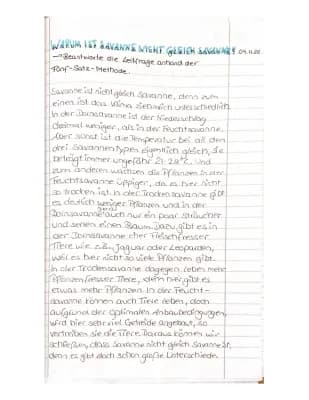 WARUM IST SAVANNE NICHT GLEICH SAVANNE? 09.11.20
→ Beantworte die Leitfrage anhand der
Fünf-Satz-Methode.
Savanne ist nicht gleich Savanne, denn zum
einen ist das Klima ziemlich unterschiedlich.
In der Dornsavanne ist der Niederschlag
diesmal weniger, als in der Feuchtsavanne.
Aber sonst ist die Temperatur bei all den
drei Savannentypen eigentlich gleich, sie
beträgt immer ungefähr 21-28°C. Und
zum anderen wachsen die Pflanzen in der
Feuchtsavanne üppiger, da es hier nicht
so trocken ist. In der Trockensavanne gibt
es deutlich weniger Pflanzen und in der
Dornsavanne auch nur ein paar Sträucher
und selten einen Baum. Dazu gibt es in
der Dornsavanne eher Fleischfresser
Tiere wie zum Jaguar oder Leoparden,
weil es hier nicht so viele Pflanzen gibt.
In der Trockensavanne dagegen leben mehr
Pflanzenfresser Tiere, denn hier gibt es
etwas mehr Pflanzen. In der Feucht-
savanne können auch Tiere leben, doch
aufgrund der optimalen Anbaubedingungen,
wird hier sehr viel Getreide angebaut, so
vertreiben sie die Tiere. Daraus können wir
schließen, dass Savanne nicht gleich Savanne ist,
denn es gibt doch schon große Unterschiede.